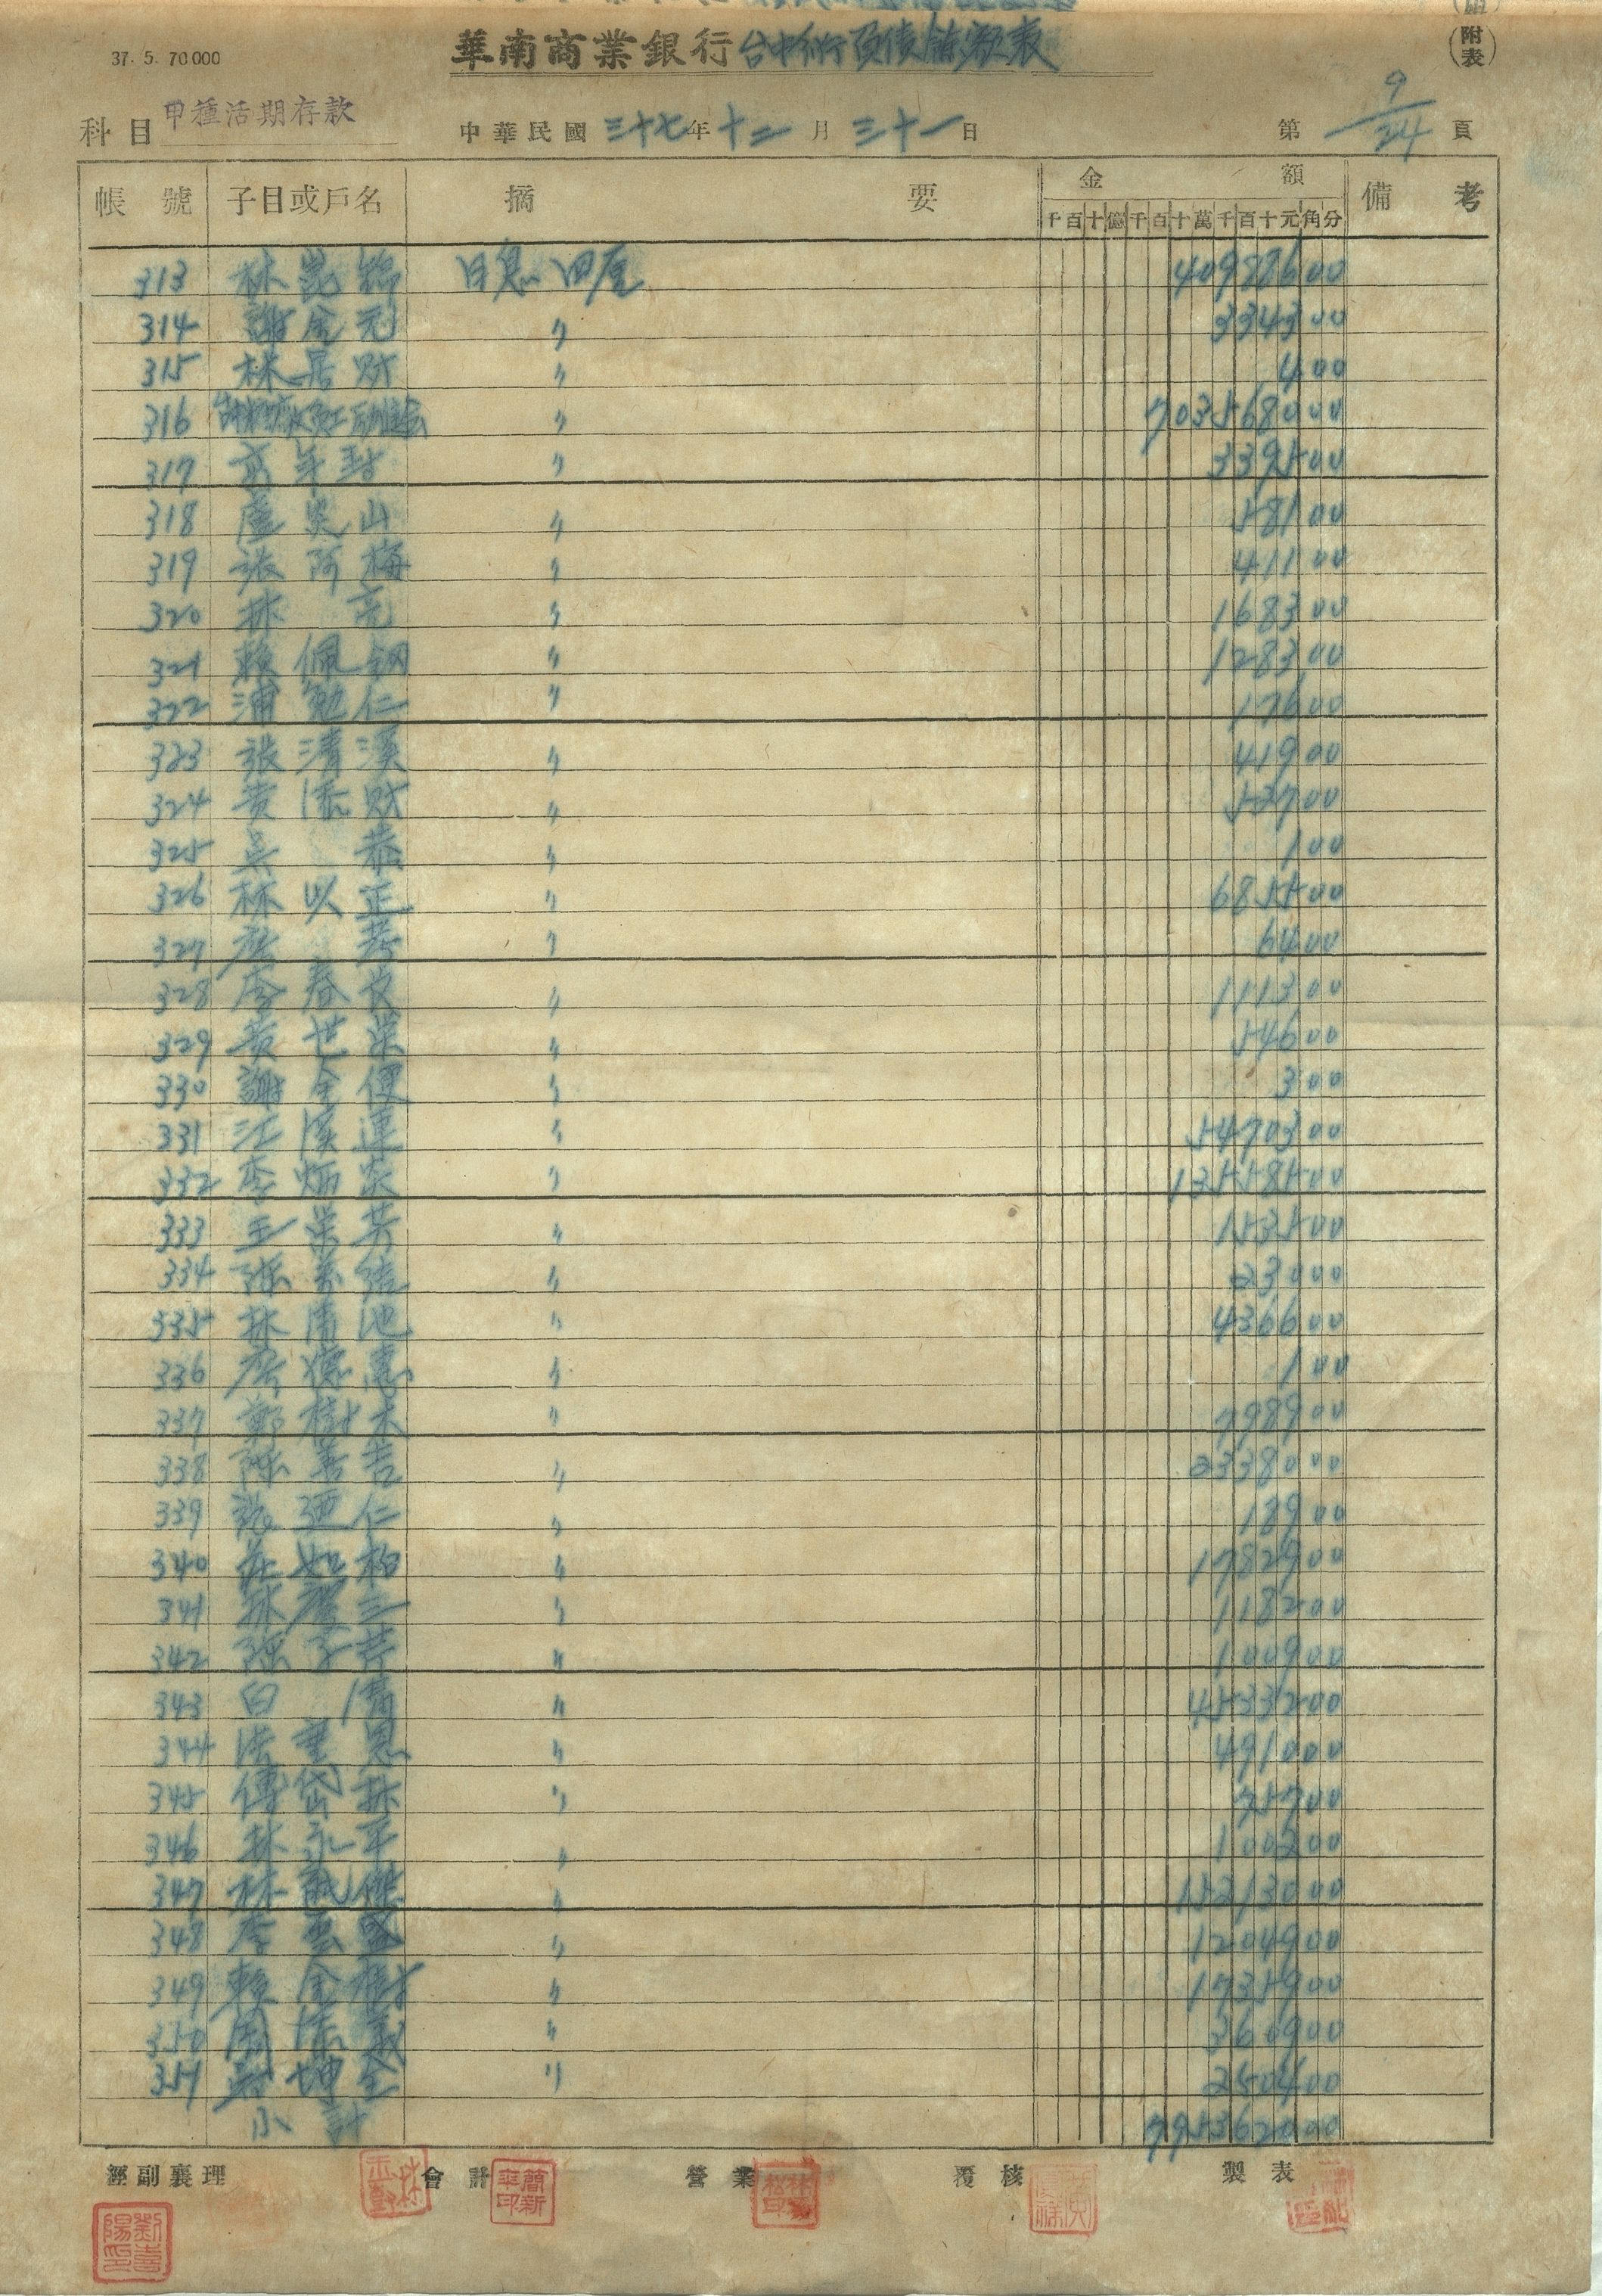 37. 5. 70000
華南商業銀行台中衍負債餘額表
(附表)
科目 甲種活期存款
中華民國三十七年十二月三十一日
第 9/34 頁
帳號 子目或戶名 摘要 金額 備考
千百十億千百十萬千百十元角分
313 林 日息四厘 40988600
314 謝金元 〃 334300
315 林居財 〃 400
316 〃 703556800
317 〃 339500
318 盧炭山 〃 58100
319 張阿梅 〃 41100
320 林亮 〃 168300
321 賴佩鋼 〃 128300
322 浦勉仁 〃 17600
323 張清溪 〃 41900
324 黃添財 〃 53700
325 吳恭 〃 100
326 林以正 〃 685500
327 〃 6400
328 李春 〃 111300
329 黃世榮 〃 54600
330 謝金便 〃 300
331 江溪連 〃 5470300
332 李炳 〃 13558500
333 王榮芳 〃 153500
334 陳 〃 23000
335 林清池 〃 436600
336 詹德惠 〃 100
337 鄭樹木 〃 798900
338 陳善吉 〃 2338000
339 張迺仁 〃 18900
340 莊如柏 〃 1782900
341 林慶三 〃 118200
342 張子芹 〃 100900
343 白清 〃 4533200
344 恩 〃 491000
345 傅岱林 〃 75700
346 林永平 〃 100200
347 林 傑 〃 15213000
348 李雲盛 〃 1204900
349 賴金樹 〃 1735900
350 周添義 〃 360900
351 坤全 〃 250400
小計 795362000
經副襄理 會計 營業 覆核 製表